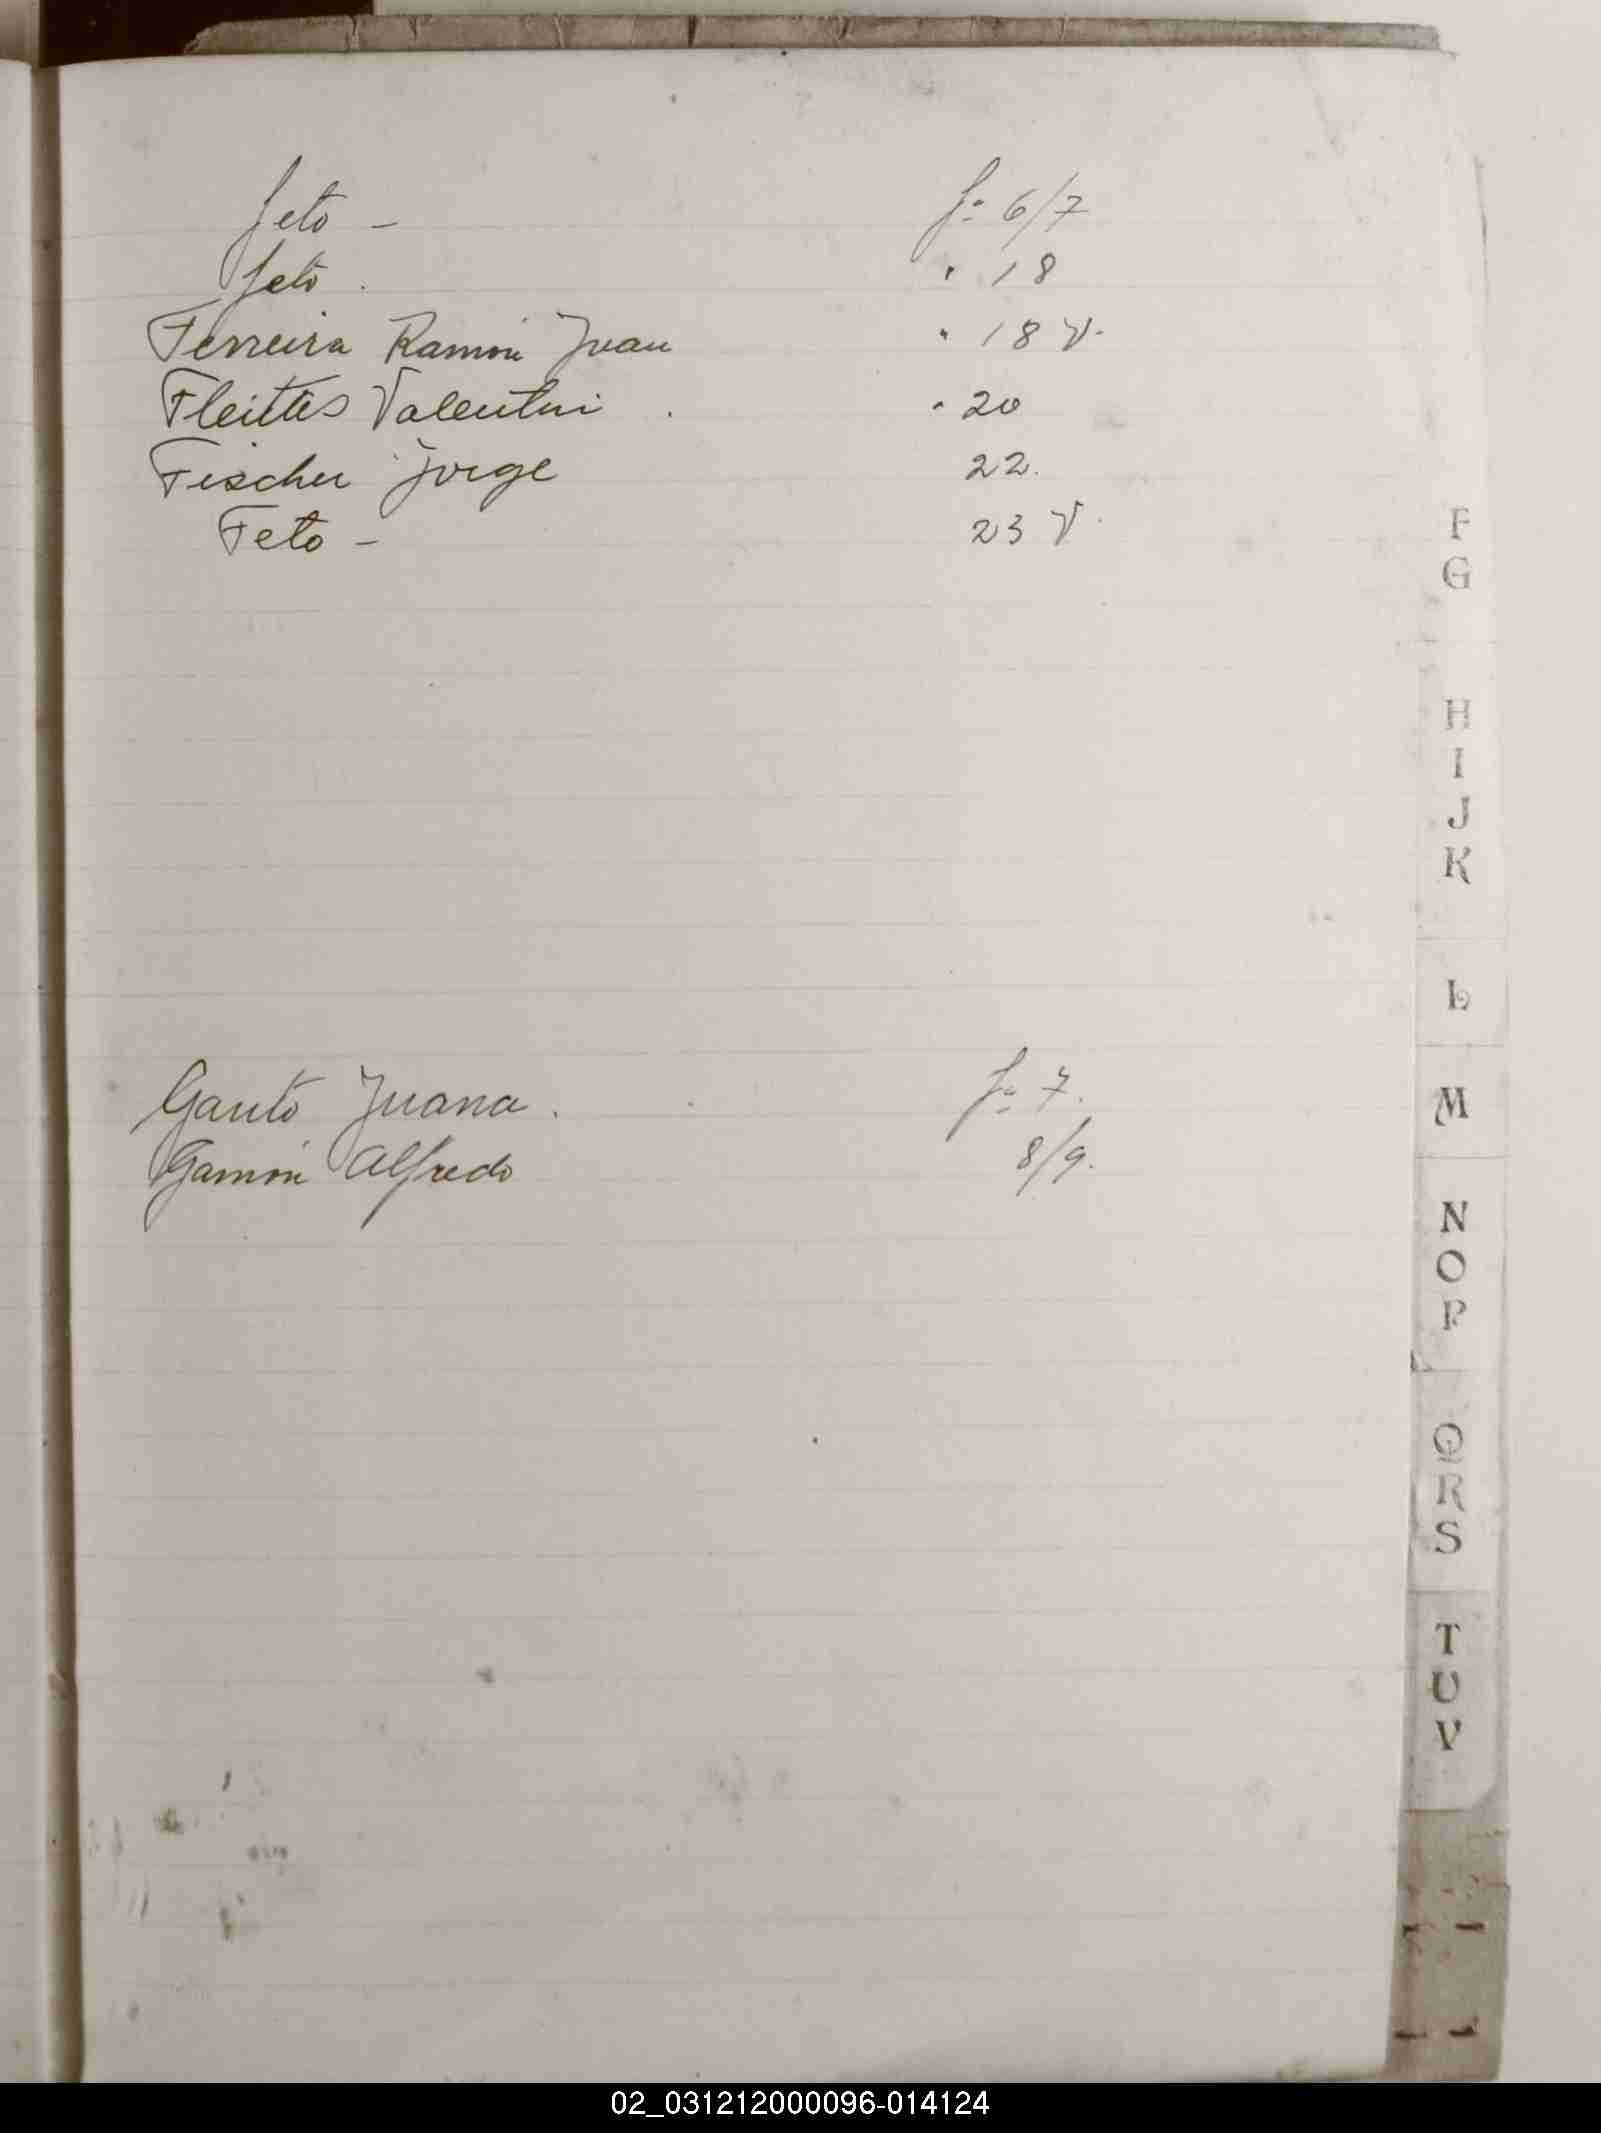 feto - fº 6/7
feto . " 18
Ferreira Ramón Juan " 18 V.
Fleittes Valentin . " 20
Fischer Jorge 22.
Feto - 23 V.
F
G
H
I
J
K
L
M
N
O
P
Q
R
S
T
U
V
Gauto Juana . fº 7.
Gamón Alfredo 8/9.
02_031212000096-014124